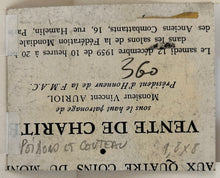 VENTE DE CHARIT
sous le haut patronage de
Monsieur Vincent AURIOL
Président d'Honneur de la F.M.A.C.
Le samedi 12 décembre 1959 de 10 heures à 20 h
dans les salons de la Fédération Mondiale
des Anciens Combattants, 16, rue Hamelin, Pa
360
POISSONS ET COUTEAU
AUX QUATRE COINS DU MON